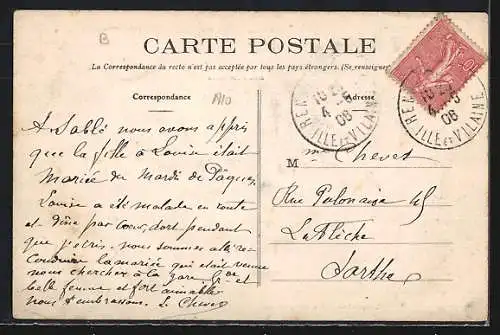 B
CARTE POSTALE
La Correspondance du recto n'est pas acceptée par tous les pays étrangers. (Se renseigner
Correspondance
Adresse
A Sablé nous avons appris
que la fille à Louise était
mariée du Mardi de Pâques
Louise a été malade en route
et dîne par coeur, dort pendant
que j'écris. nous sommes allé re-
conduire la mariée qui était venue
nous chercher à la gare et
belle femme et fort aimable
nous t'embrassons. L. Cheves
M
me Cheves
Rue Polonaise 45
La Flèche
Sarthe
ILLE ET VILAINE
4 -5
06
REN
ILLE ET VILAINE
4 -5
06
10